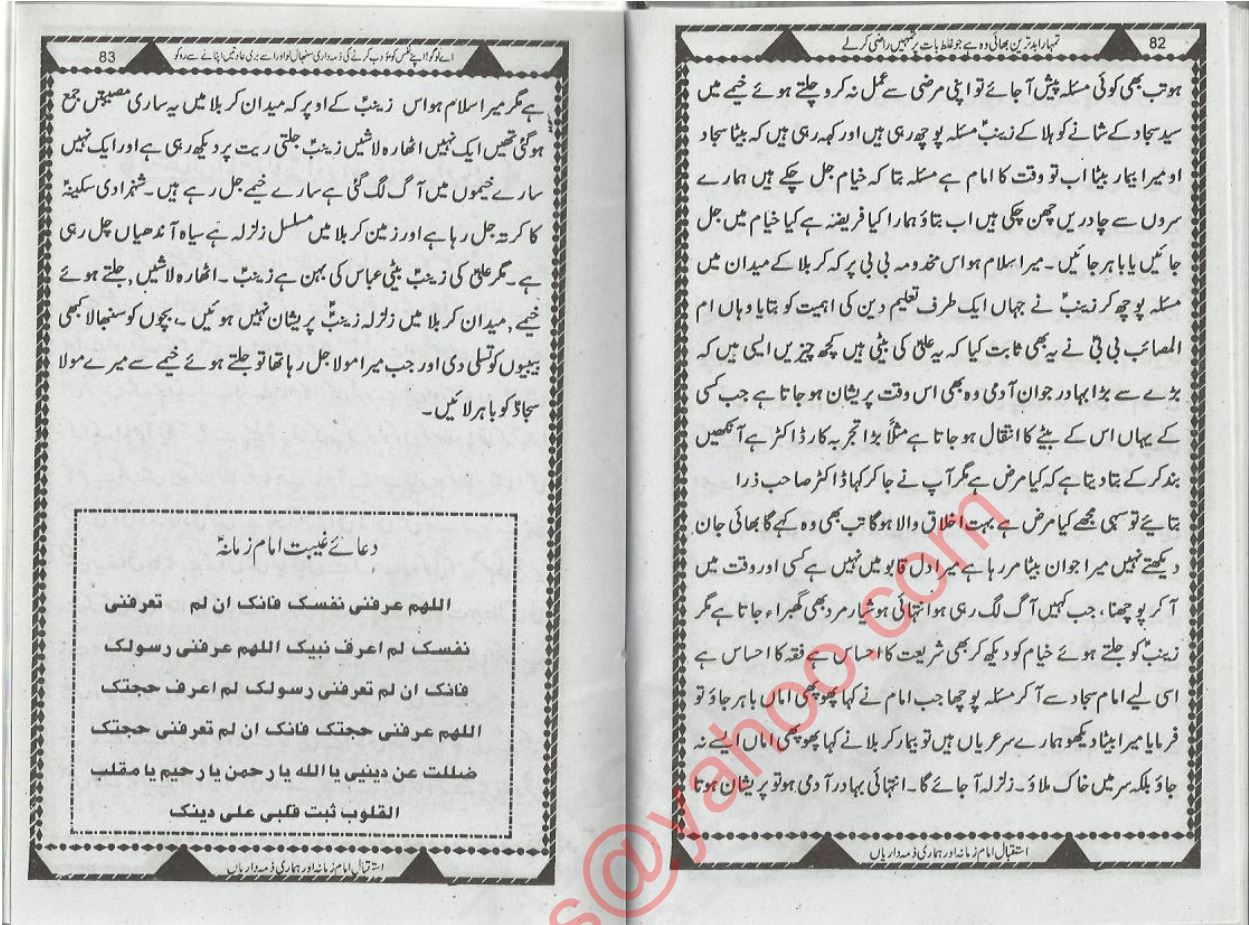 82
تمہارا بدترین بھائی وہ ہے جو غلط بات پر تمہیں راضی کرلے
ہو تب بھی کوئی مسئلہ پیش آجائے تو اپنی مرضی سے عمل نہ کرو چلتے ہوئے خیمے میں
سید سجاد کے شانے کو ہلا کے زینبؑ مسئلہ پوچھ رہی ہیں اور کہہ رہی ہیں کہ بیٹا سجاد
او میرا بیمار بیٹا اب تو وقت کا امام ہے مسئلہ بتا کہ خیام جل چکے ہیں ہمارے
سروں سے چادریں چھن چکی ہیں اب بتاؤ ہمارا کیا فریضہ ہے کیا خیام میں جل
جائیں یا باہر جائیں۔ میرا سلام ہو اس مخدومہ بی بی پر کہ کربلا کے میدان میں
مسئلہ پوچھ کر زینبؑ نے جہاں ایک طرف تعلیم دین کی اہمیت کو بتایا وہاں ام
المصائب بی بی نے یہ بھی ثابت کیا کہ یہ علیؑ کی بیٹی ہیں کچھ چیزیں ایسی ہیں کہ
بڑے سے بڑا بہادر جوان آدمی وہ بھی اس وقت پریشان ہو جاتا ہے جب کسی
کے یہاں اس کے بیٹے کا انتقال ہو جاتا ہے مثلاً بڑا تجربہ کار ڈاکٹر ہے آنکھیں
بند کر کے بتا دیتا ہے کہ کیا مرض ہے مگر آپ نے جا کر کہا ڈاکٹر صاحب ذرا
بتائیے تو سہی مجھے کیا مرض ہے بہت اخلاق والا ہوگا تب بھی وہ کہے گا بھائی جان
دیکھتے نہیں میرا جوان بیٹا مر رہا ہے میرا دل قابو میں نہیں ہے کسی اور وقت میں
آکر پوچھنا، جب کہیں آگ لگ رہی ہو انتہائی ہوشیار مرد بھی گھبراء جاتا ہے مگر
زینبؑ کو جلتے ہوئے خیام کو دیکھ کر بھی شریعت کا احساس ہے فقہ کا احساس ہے
اسی لیے امام سجاد سے آکر مسئلہ پوچھا جب امام نے کہا پھوپھی اماں باہر جاؤ تو
فرمایا میرا بیٹا دیکھو ہمارے سر عریاں ہیں تو بیمار کربلا نے کہا پھوپھی اماں ایسے نہ
جاؤ بلکہ سر میں خاک ملاؤ۔ زلزلہ آجائے گا۔ انتہائی بہادر آدمی ہو تو پریشان ہوتا
استقبال امام زمانہ اور ہماری ذمہ داریاں
83
اے لوگو! اپنے نفس کو مؤدب کرنے کی ذمہ داری سنبھال لو اور اسے بری عادتیں اپنانے سے روکو
ہے مگر میرا سلام ہو اس زینبؑ کے اوپر کہ میدان کربلا میں یہ ساری مصیبتیں جمع
ہو گئی تھیں ایک نہیں اٹھارہ لاشیں زینبؑ جلتی ریت پر دیکھ رہی ہے اور ایک نہیں
سارے خیموں میں آگ لگ گئی ہے سارے خیمے جل رہے ہیں۔ شہزادی سکینہؑ
کا کرتہ جل رہا ہے اور زمین کربلا میں مسلسل زلزلہ ہے سیاہ آندھیاں چل رہی
ہے۔ مگر علیؑ کی زینبؑ بیٹی عباس کی بہن ہے زینبؑ۔ اٹھارہ لاشیں، جلتے ہوئے
خیمے، میدان کربلا میں زلزلہ زینبؑ پریشان نہیں ہوئیں ے بچوں کو سنبھالا کبھی
بیبیوں کو تسلی دی اور جب میرا مولا جل رہا تھا تو جلتے ہوئے خیمے سے میرے مولا
سجادؑ کو باہر لائیں۔
دعائے غیبت امام زمانہؑ
اللھم عرفنی نفسک فانک ان لم تعرفنی
نفسک لم اعرف نبیک اللھم عرفنی رسولک
فانک ان لم تعرفنی رسولک لم اعرف حجتک
اللھم عرفنی حجتک فانک ان لم تعرفنی حجتک
ضللت عن دینیی یا اللہ یا رحمن یا رحیم یا مقلب
القلوب ثبت قلبی علی دینک
استقبال امام زمانہ اور ہماری ذمہ داریاں
s@yahoo.com